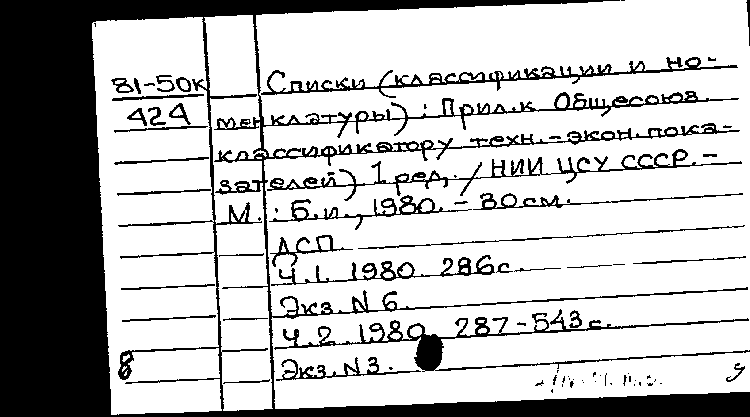 81-50к Списки (классификации и но-
424 менклатуры) : Прил. к Общесоюз.
классификатору техн.-экон. пока-
зателей) 1 ред. / НИИ ЦСУ СССР. -
М. : Б.и., 1980. - 30 см.
ДСП.
Ч.1. 1980. 286с.
Экз. N 6.
Ч.2. 1980. 287-543с.
8 Экз. N 3.